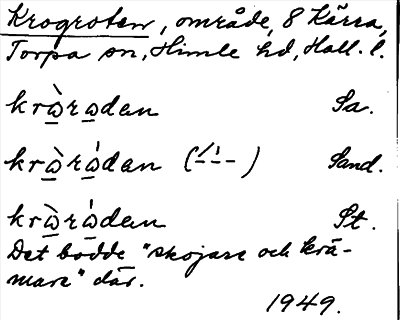 Krogroten, område, 8 Kärra,
Torpa sn, Himle hd, Hall. l.
krὼ̲rω̲dan Sa.
krὼ̲rώ̲dan (–́–́–) Sand.
krὼ̲rώ̲dan St.
Det bodde "skojare och krä-
mare" där.
1949.